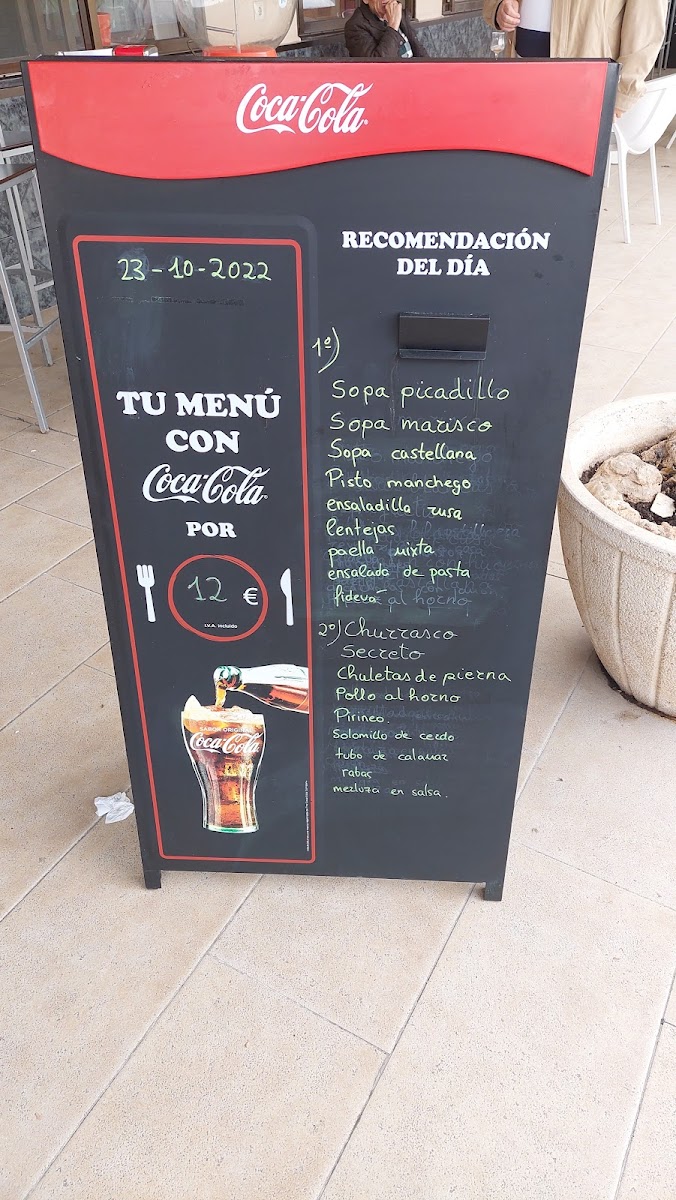 Coca-Cola
23-10-2022
TU MENÚ
CON
Coca-Cola
POR
12 €
I.V.A. Incluido
SABOR ORIGINAL
Coca-Cola
RECOMENDACIÓN
DEL DÍA
1º)
Sopa picadillo
Sopa marisco
Sopa castellana
Pisto manchego
ensaladilla rusa
lentejas
paella mixta
ensalada de pasta
fideuá
2º) Churrasco
Secreto
Chuletas de pierna
Pollo al horno
Pirineo.
Solomillo de cerdo
tubo de calamar
rabas
merluza en salsa.